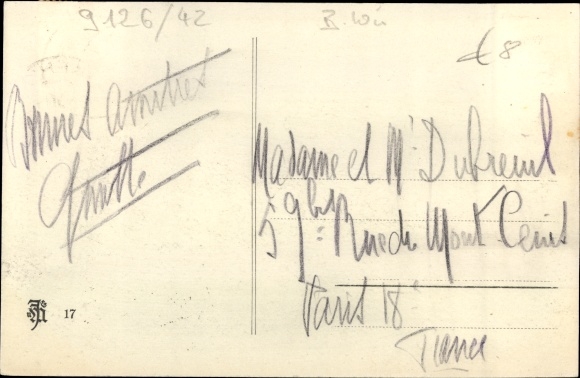 9126/42
B. Wü
€8
Bonnes Amitiés
Madame et Mr Dubreuil
59bis Rue du Mont Cenis
Paris 18e
France
17